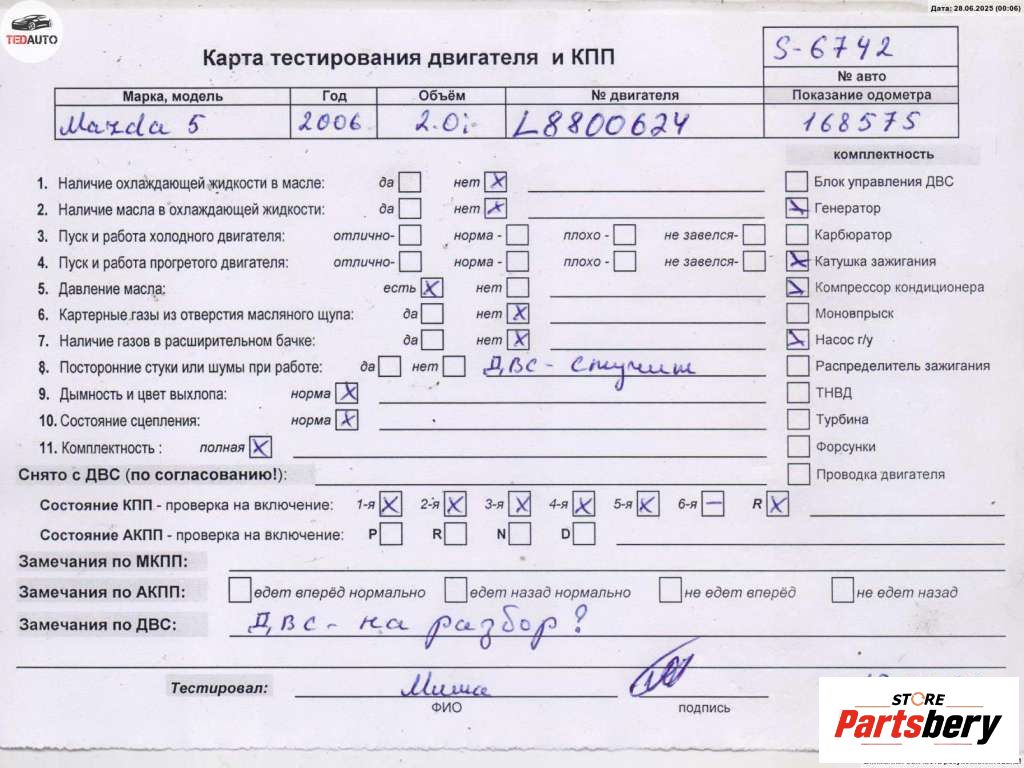 Дата: 28.06.2025 (00:06)
TEDAUTO
Карта тестирования двигателя и КПП
S-6742
№ авто
Марка, модель Год Объём № двигателя Показание одометра
Mazda 5 2006 2.0i L8800624 168575
комплектность
1. Наличие охлаждающей жидкости в масле: да нет X Блок управления ДВС
2. Наличие масла в охлаждающей жидкости: да нет X Генератор
3. Пуск и работа холодного двигателя: отлично- норма - плохо - не завелся- Карбюратор
4. Пуск и работа прогретого двигателя: отлично- норма - плохо - не завелся- Катушка зажигания
5. Давление масла: есть X нет Компрессор кондиционера
6. Картерные газы из отверстия масляного щупа: да нет X Моновпрыск
7. Наличие газов в расширительном бачке: да нет X Насос г/у
8. Посторонние стуки или шумы при работе: да нет ДВС - стучит Распределитель зажигания
9. Дымность и цвет выхлопа: норма X ТНВД
10. Состояние сцепления: норма X Турбина
11. Комплектность : полная X Форсунки
Снято с ДВС (по согласованию!): Проводка двигателя
Состояние КПП - проверка на включение: 1-я X 2-я X 3-я X 4-я X 5-я X 6-я – R X
Состояние АКПП - проверка на включение: P R N D
Замечания по МКПП:
Замечания по АКПП: едет вперёд нормально едет назад нормально не едет вперёд не едет назад
Замечания по ДВС: ДВС - на разбор?
Тестировал: Миша
ФИО подпись
STORE
Partsbery